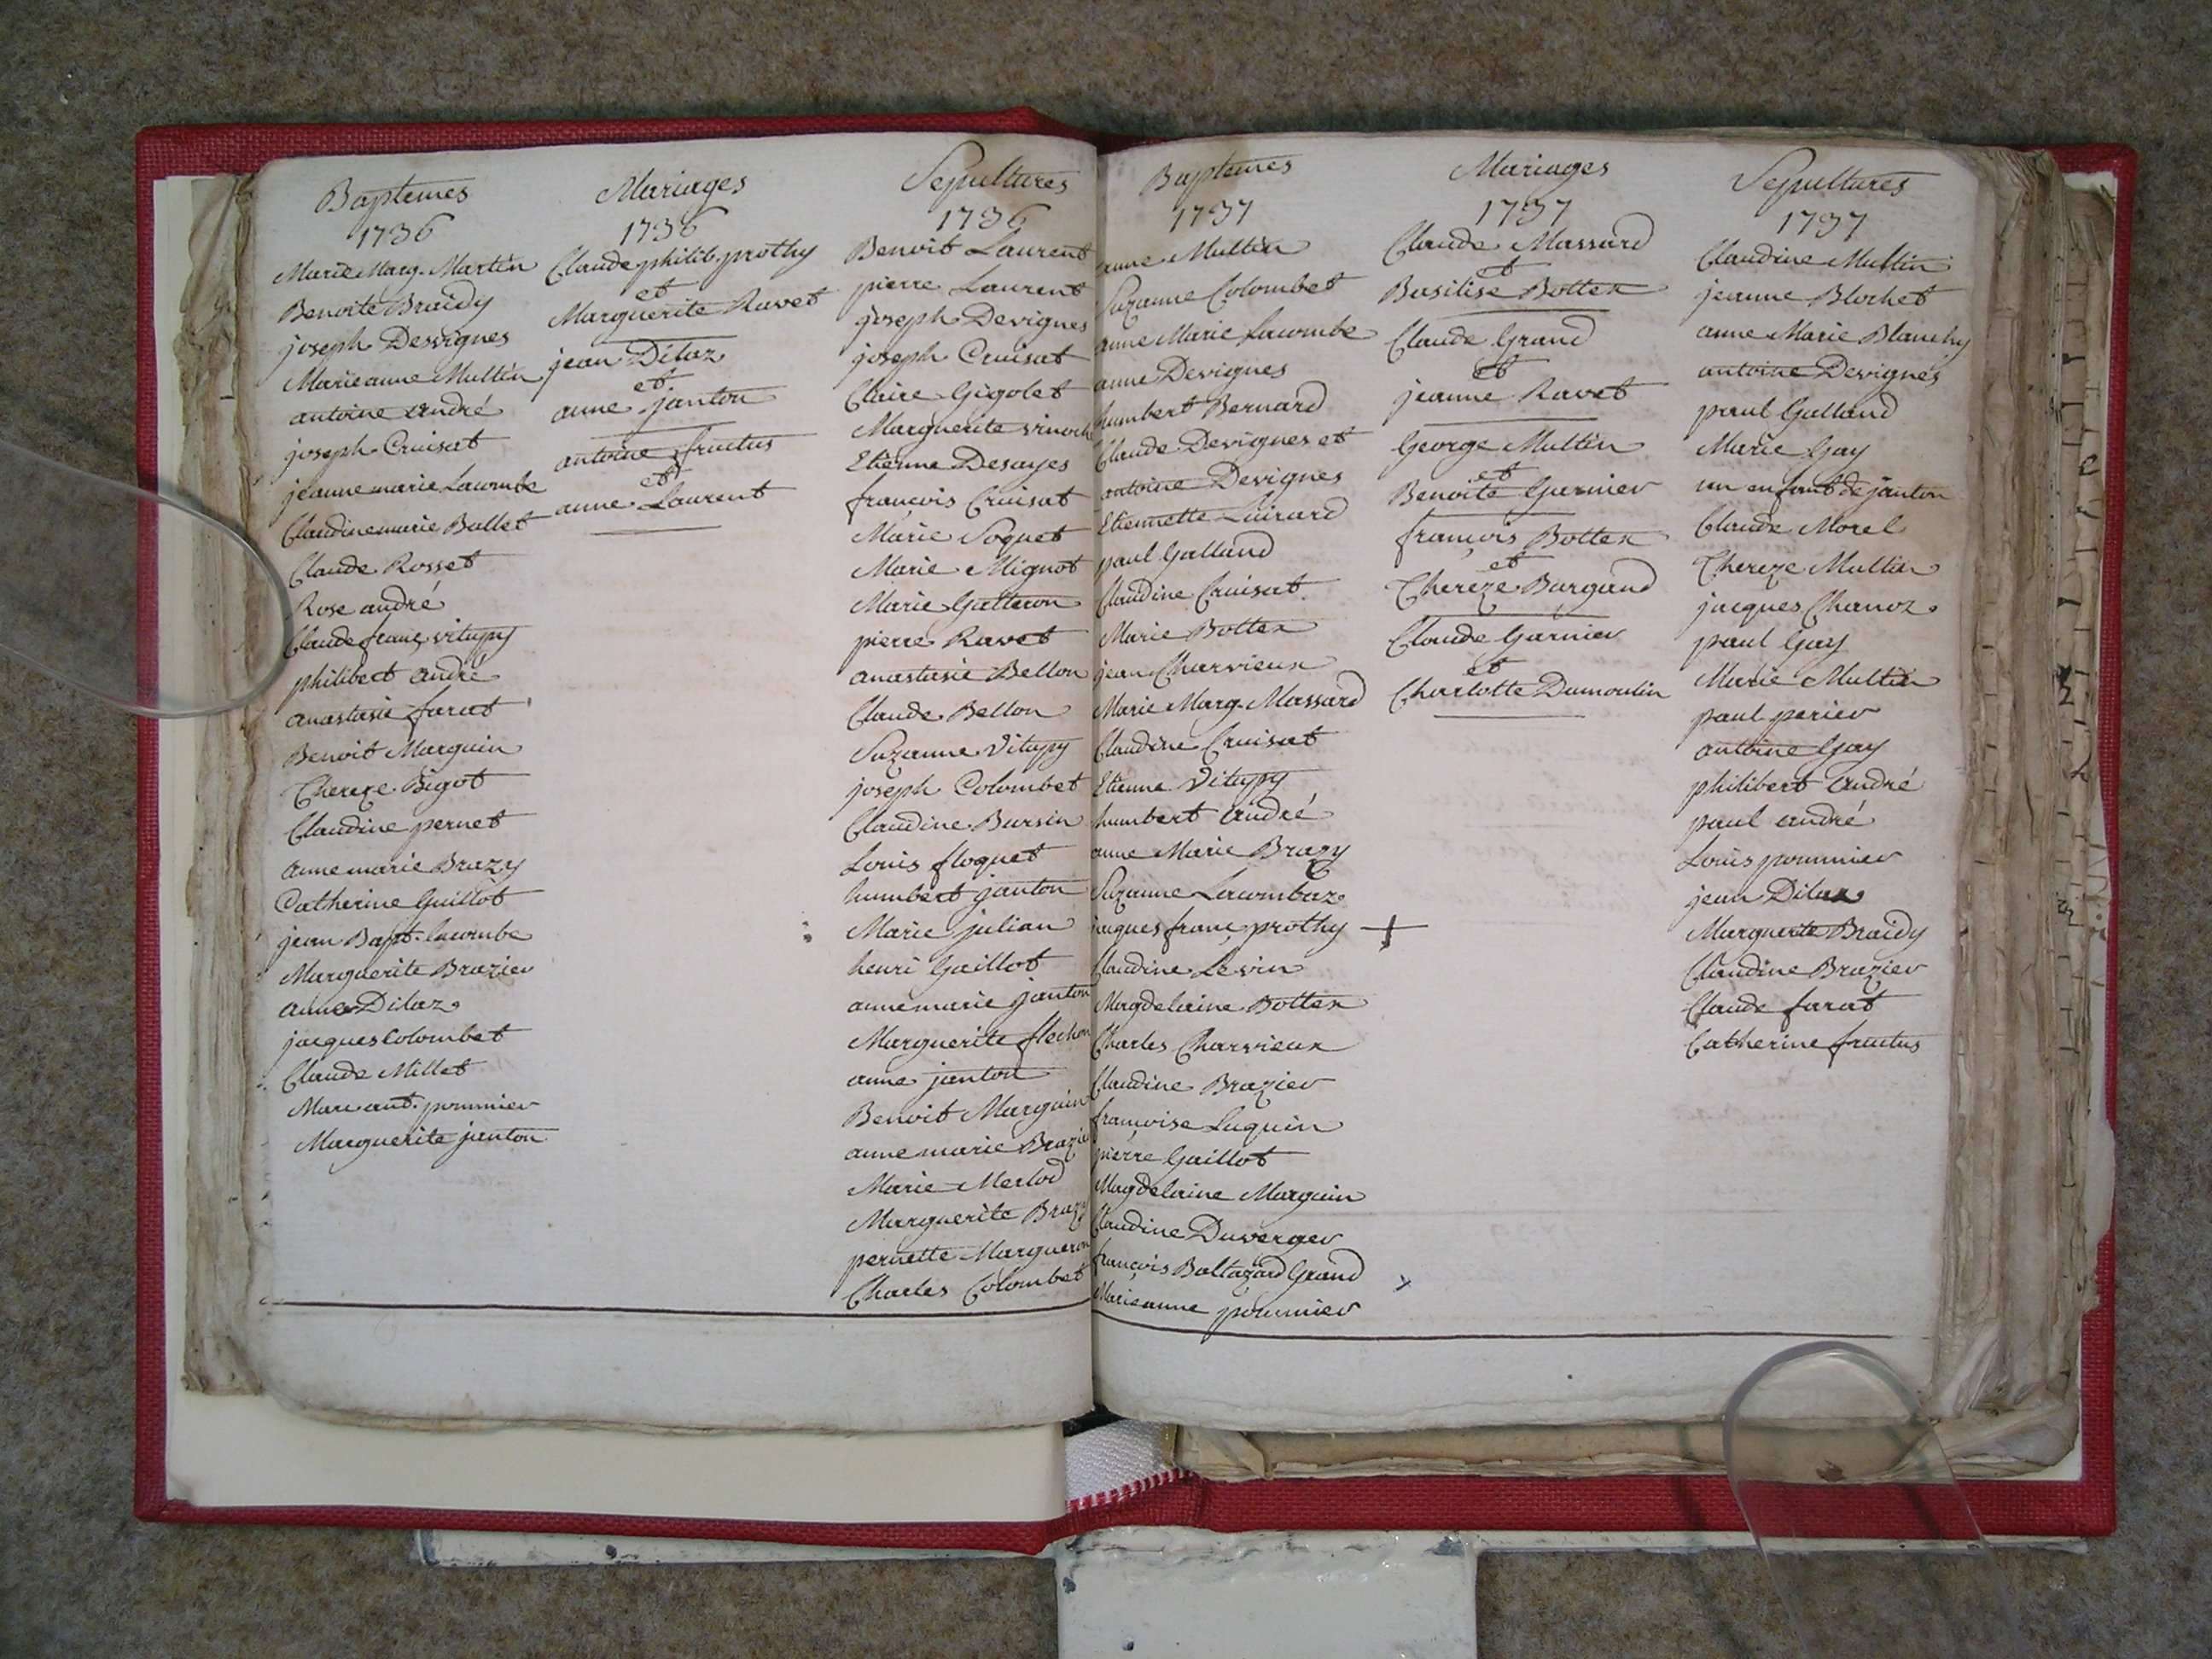 Baptemes
1736
Marie Marg. Martin
Benoite Braidy
joseph Desvignes
Marie anne Multin
antoine andré
joseph Cruisat
jeanne marie Lacombe
Claudine marie Ballet
Claude Rosset
Rose andré
Claude franç vitupy
philibert andré
anastasie farat
Benoit Marguin
Thereze Bigot
Claudine pernet
anne marie Brazy
Catherine Guillot
jean Bapt. lacombe
Marguerite Brazier
anne Dilaz
jacques Colombet
Claude Millet
Marc ant. pommier
Marguerite janton
Mariages
1736
Claude philib. prothy
et
Marguerite Ravet
jean Dilaz
et
anne janton
antoine fructus
et
anne Laurent
Sepultures
1736
Benoit Laurent
pierre Laurent
joseph Devignes
joseph Cruisat
Claire Gigolet
Marguerite
Etienne Desayes
francois Cruisat
Marie Soquet
Marie Mignot
Marie Galteron
pierre Ravet
anastasie Bellon
Claude Bellon
Suzanne Vitupy
joseph Colombet
Claudine Bursin
Louis floquet
humbert janton
Marie julian
henri Gaillot
anne marie janton
Marguerite flechon
anne janton
Benoit Marguin
anne marie Brazie
Marie Merlod
Marguerite Brazy
pernette Margueron
Charles Colombet
Baptemes
1737
anne Multin
Suzanne Colombet
anne Marie Lacombe
anne Devignes
humbert Bernard
Claude Devignes et
antoine Devignes
Etiennette Luirard
paul Galland
Claudine Cruisat
Marie Bottex
jean Charvieux
Marie Marg. Massard
Claudine Cruisat
Etienne Vitupy
humbert andré
anne Marie Brazy
Suzanne Lacombaz
jacques franç prothy +
Claudine Levin
Magdelaine Bottex
Charles Charvieux
Claudine Brazier
françoise Luquin
pierre Gaillot
Magdelaine Marguin
Claudine Duverger
françois Baltazard Grand x
Marie anne pommier
Mariages
1737
Claude Massard
et
Basilise Bottex
Claude Grand
et
jeanne Ravet
George Multin
et
Benoite Garnier
françois Bottex
et
Thereze Burgand
Claude Garnier
et
Charlotte Dumoulin
Sepultures
1737
Claudine Multin
jeanne Blochet
anne Marie Blanchy
antoine Devignes
paul Galland
Marie Gay
un enfant de janton
Claude Morel
Thereze Multin
jacques Chanoz
paul Gay
Marie Multin
paul perier
antoine Gay
philibert andré
paul andré
Louis pommier
jean Dilax
Marguerite Braidy
Claudine Brazier
Claude farat
Catherine fructus